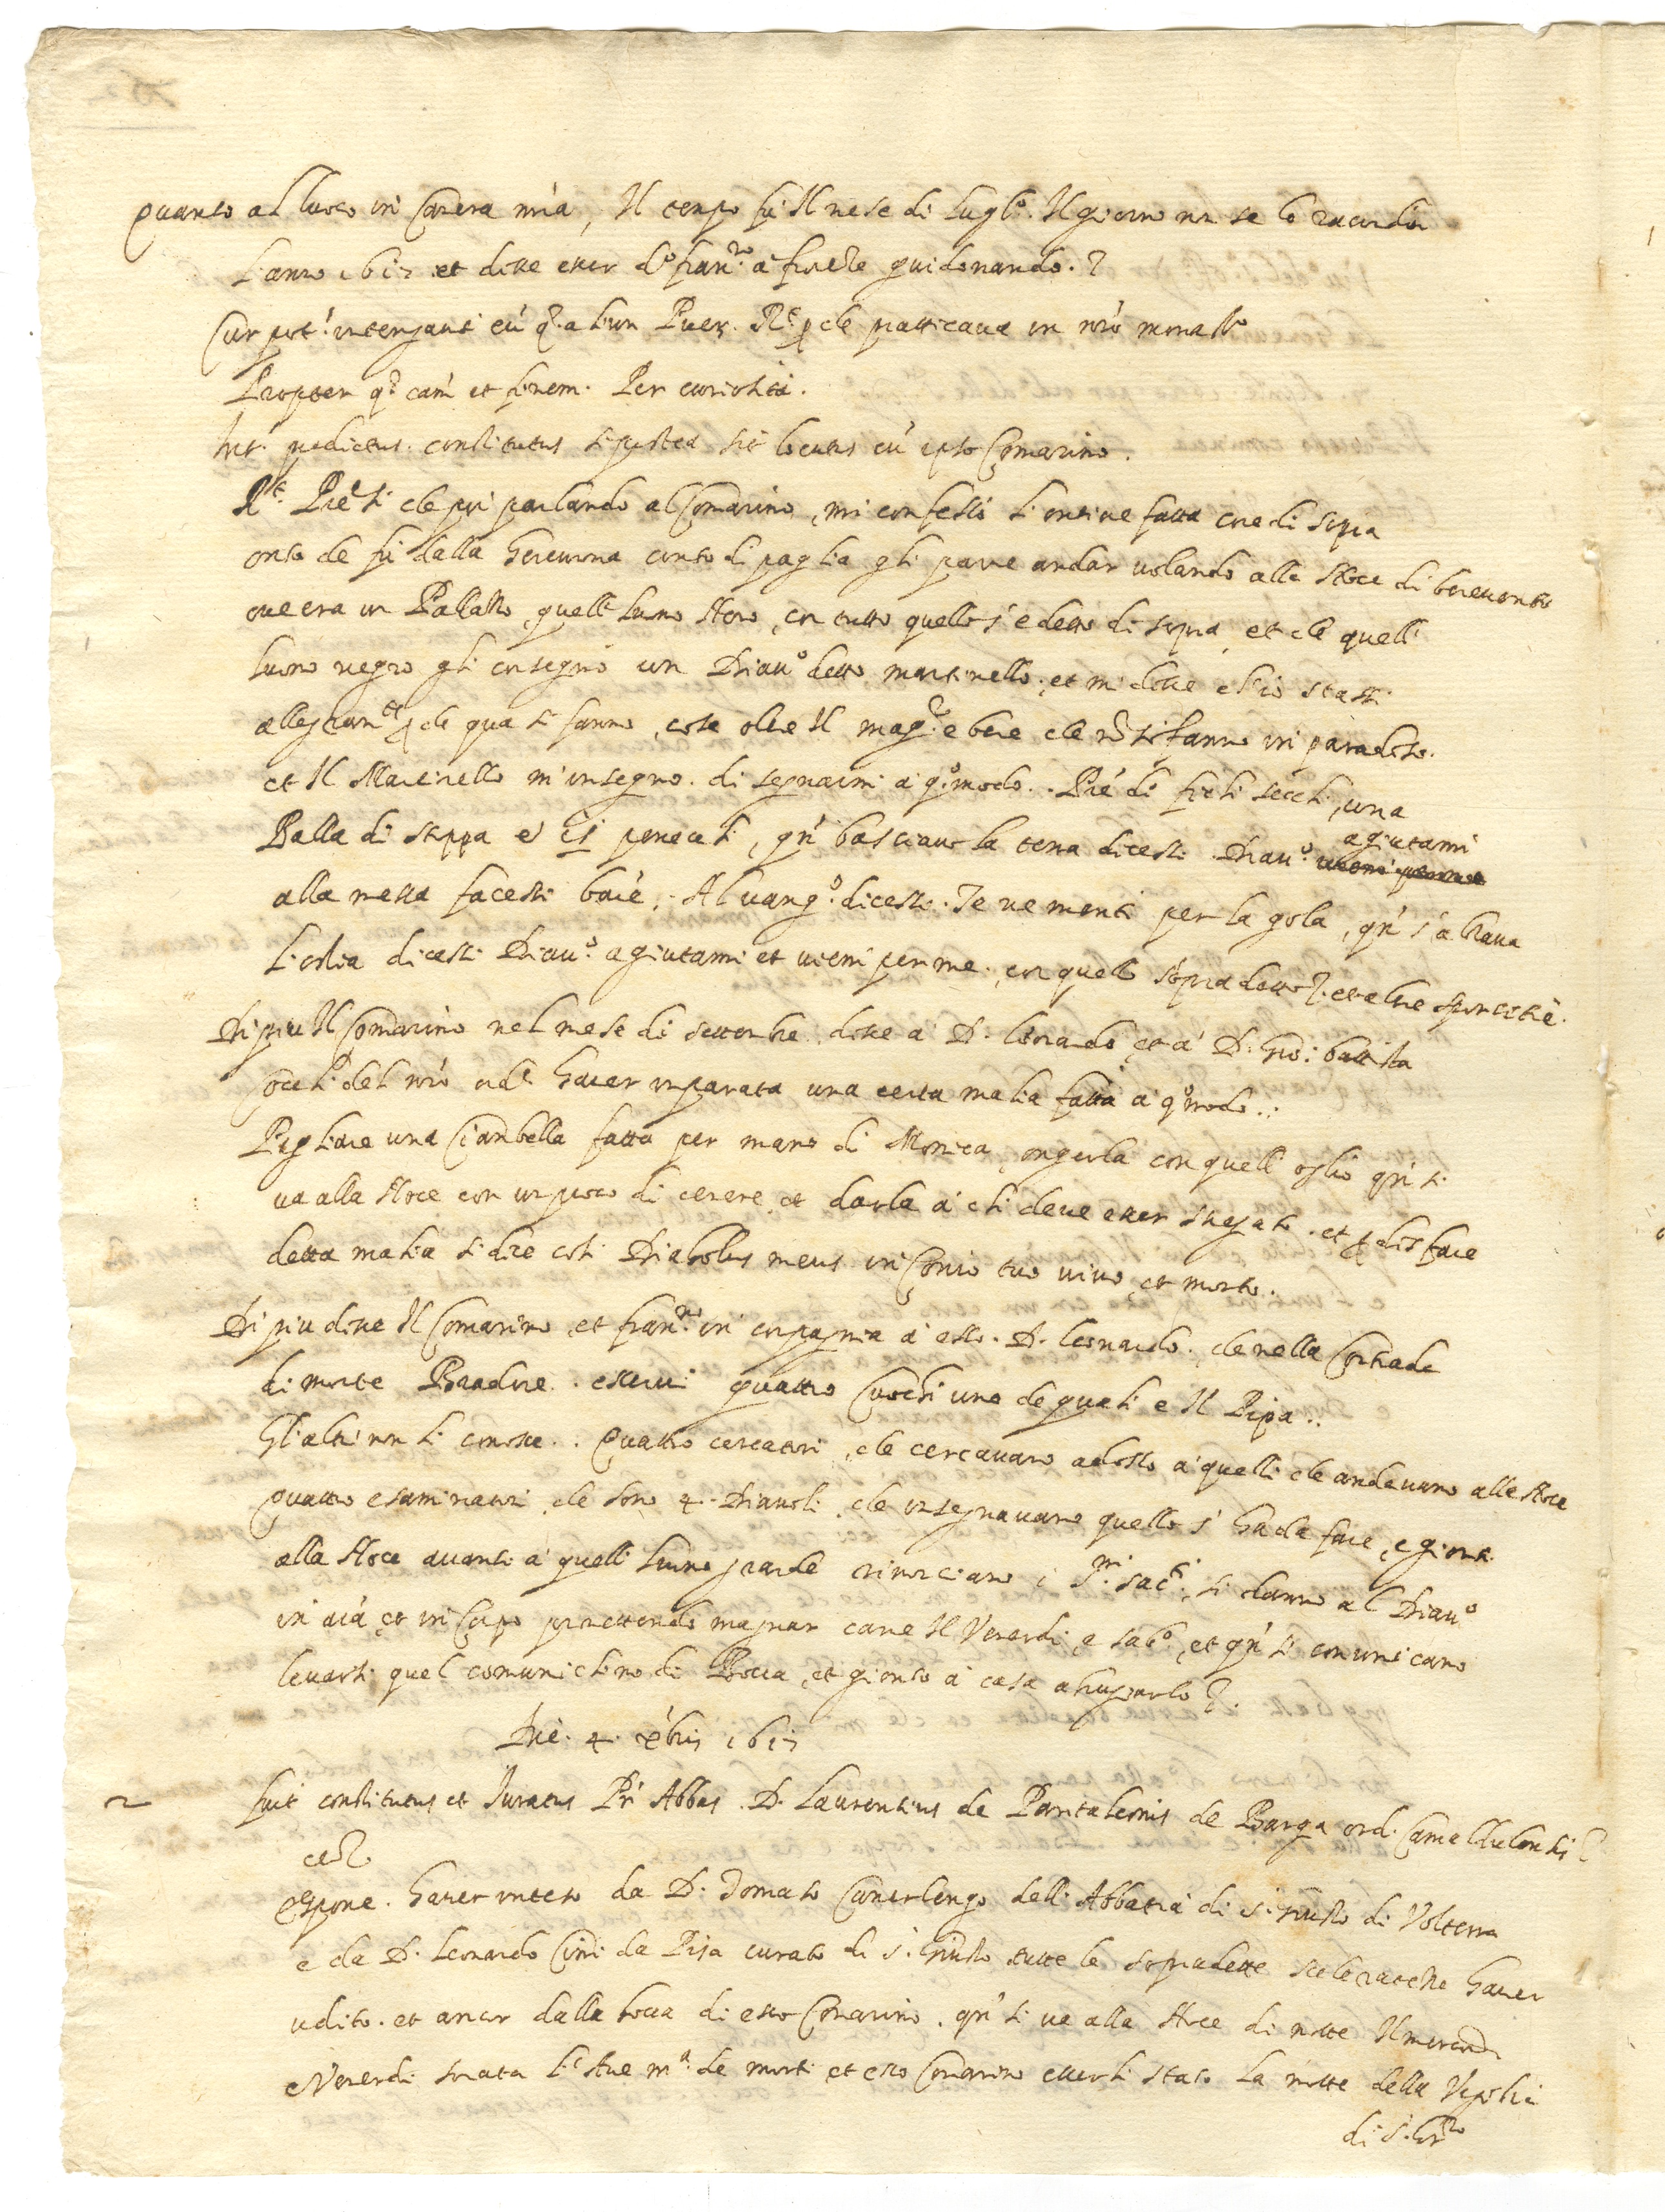 Quanto al luoco in Camera mia, Il tempo fu Il mese di Lugl.o Il giorno nn se lo racorda
L'anno 1617 et disse esser d.o fran.co a guidonando.
Cur pot.s interjanti cū q. alium Puer. R.t p che patticava in nrō monast.o
Propter q. cam et finem. Per curiosità.
Int. predictus constitutus si postea sit locutus cū ipso Comarino.
R.t Prē si che poi parlando al Comarino, mi confessò l'ontione fatta come di sopra
onto che fu dalla Gerevona conto di paglia gli parve andar volando alla Noce di benevento
ove era un Palasso, quell'huomo Nero, con tutto quello s'è detto di sopra, et che quell'
huomo negro gli insegnò un Diav.o detto martinello, et mi disse ch'io stassi
allegram.te p che qua si fanno cose oltre Il mag.r e bere che nō si fanno in paradiso.
et Il Martinello m'insegnò di segnarmi a q.o modo. Piē di fichi secchi, una
Balla di stoppa e 15 penechi, qn̄ basciavo la terra dicessi Diav.o agiutami
alla messa facessi baie, Al vang.o dicessi Te ne menti per la gola, qn̄ s'alzava
l'ostia dicessi Diav.o agiutami et vieni per me, con quello sopradetto et altre sporcitie.
Di piu Il Comarino nel mese di settembre disse a D. Leonardo et a D. Gio: battista
del nrō ord.e haver imparata una certa malia fatta a q.o modo.:
Pigliare una Ciambella fatta per mano di Monica, ongerla con quell'oglio qn̄ si
va alla Noce con un poco di cenere et darla a chi deve esser stregato. et p disfare
detta malia si dice cosi Diabolus meus in Comio tuo vivo et morto.
Di piu disse Il Comarino et fran.co in compagnia a esso D. Leonardo, che nella Contrada
di monte Bradone esservi quattro Cuochi uno de quali e Il Pipa..
Gl'altri non li conosce.. Quattro cercatori, che cercavano adosso a quelli che andavano alla Noce
Quattro esaminatori che sono 4 Diavoli, che insegnavano quello s'ha da fare, e gionti
alla Noce avanti a quell'huomo grande rinonciano i S.mi sac.ti si danno al Diav.o
in aīa et in Corpo promettendo magnar carne Il Venerdi, e sab.o, et qn̄ si comunicano
levarsi quel comunichino di Bocca, et gionto a casa abrugiarlo.
Die. 4. xbris 1617
fuit constitutus et Juratus Pr̄ Abbas D. Laurentius de Pantaleonis de Barga ord. Camaldulensis
espone. Haver inteso da D. Donato Camerlengo dell'Abbatia di S. Giusto di Volterra
e da D. Leonardo Cini da Pisa curato di S. Giusto tutte le sopradette sceleratezze haver
udito. et ancor dalla bocca di esso Comarino. qn̄ si va alla Noce di notte Il mercordi
e Venerdi sonata l'Ave m.a de morti et esso Comarino esserli stato la notte della Vigilia
di S.